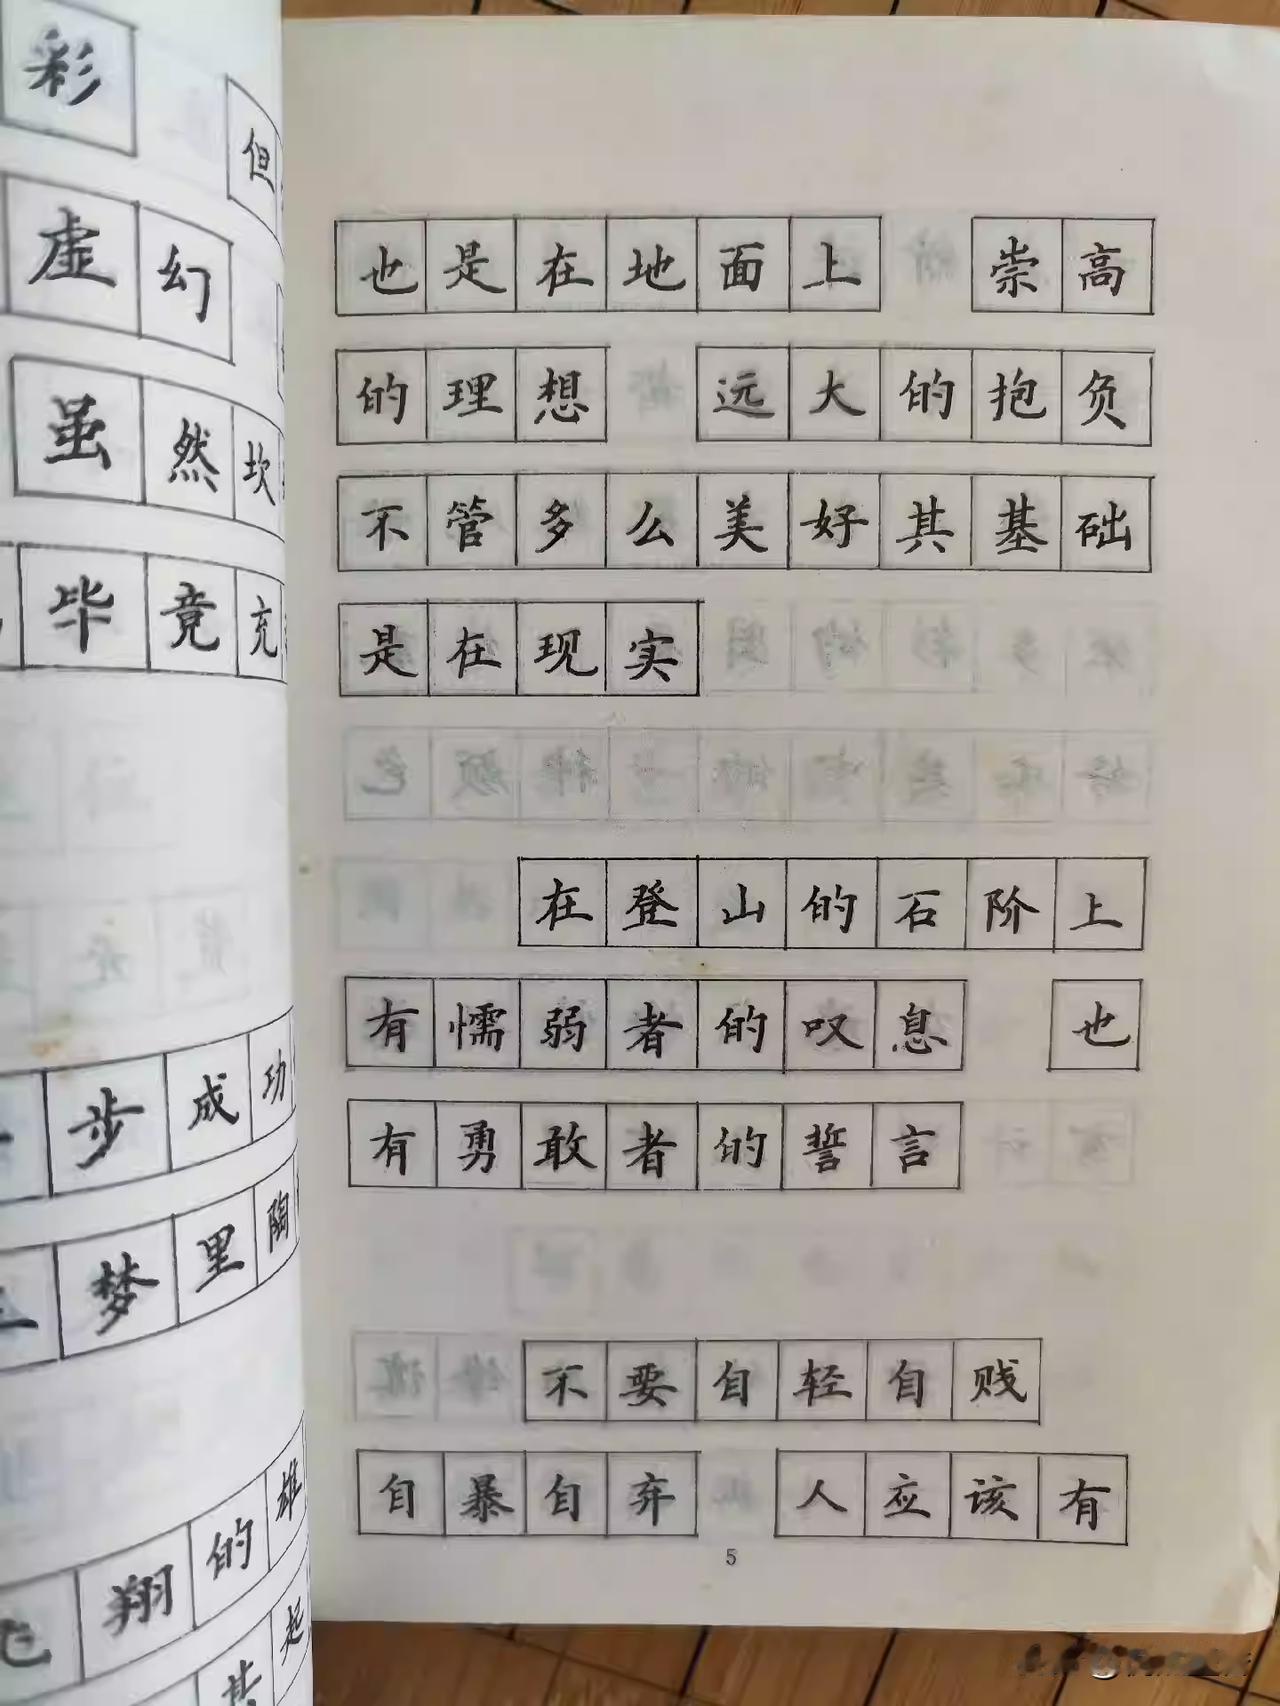 彩
但
虚幻
虽然坎
毕竟充
步成功
梦里陶
翔的雄
其起
也是在地面上 崇高
的理想 远大的抱负
不管多么美好其基础
是在现实
在登山的石阶上
有懦弱者的叹息 也
有勇敢者的誓言
不要自轻自贱
自暴自弃 人应该有
5